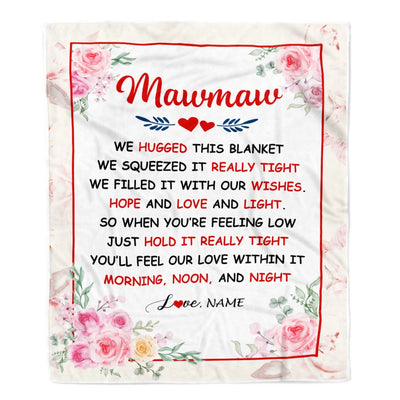 Mawmaw
WE HUGGED THIS BLANKET
WE SQUEEZED IT REALLY TIGHT
WE FILLED IT WITH OUR WISHES.
HOPE AND LOVE AND LIGHT.
SO WHEN YOU'RE FEELING LOW
JUST HOLD IT REALLY TIGHT
YOU'LL FEEL OUR LOVE WITHIN IT
MORNING, NOON, AND NIGHT
Love, NAME